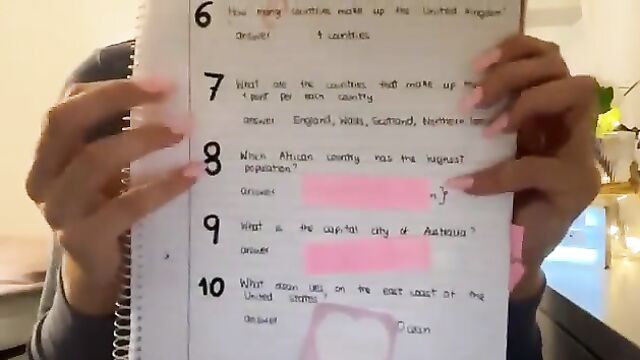 6 How many countries make up the United Kingdom?
answer 4 countries
7 What are the countries that make up the
1 point per each country
answer England, Wales, Scotland, Northern
8 Which African country has the highest
population?
answer
9 What is the capital city of Australia?
answer
10 What ocean lies on the east coast of the
United States?
answer Ocean